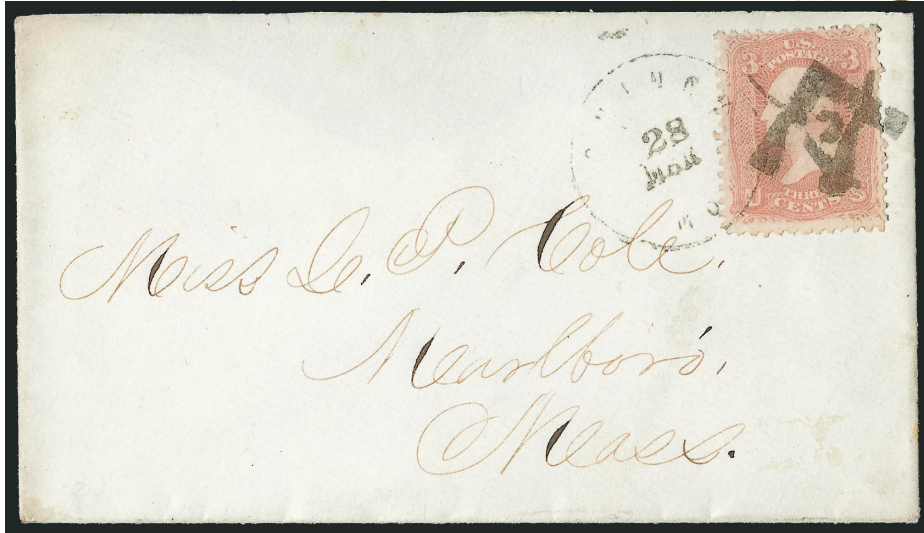 U.S.
POSTAGE
3 3
28
THREE
CENTS
Miss L. P. Cole.
Marlboro',
Mass.